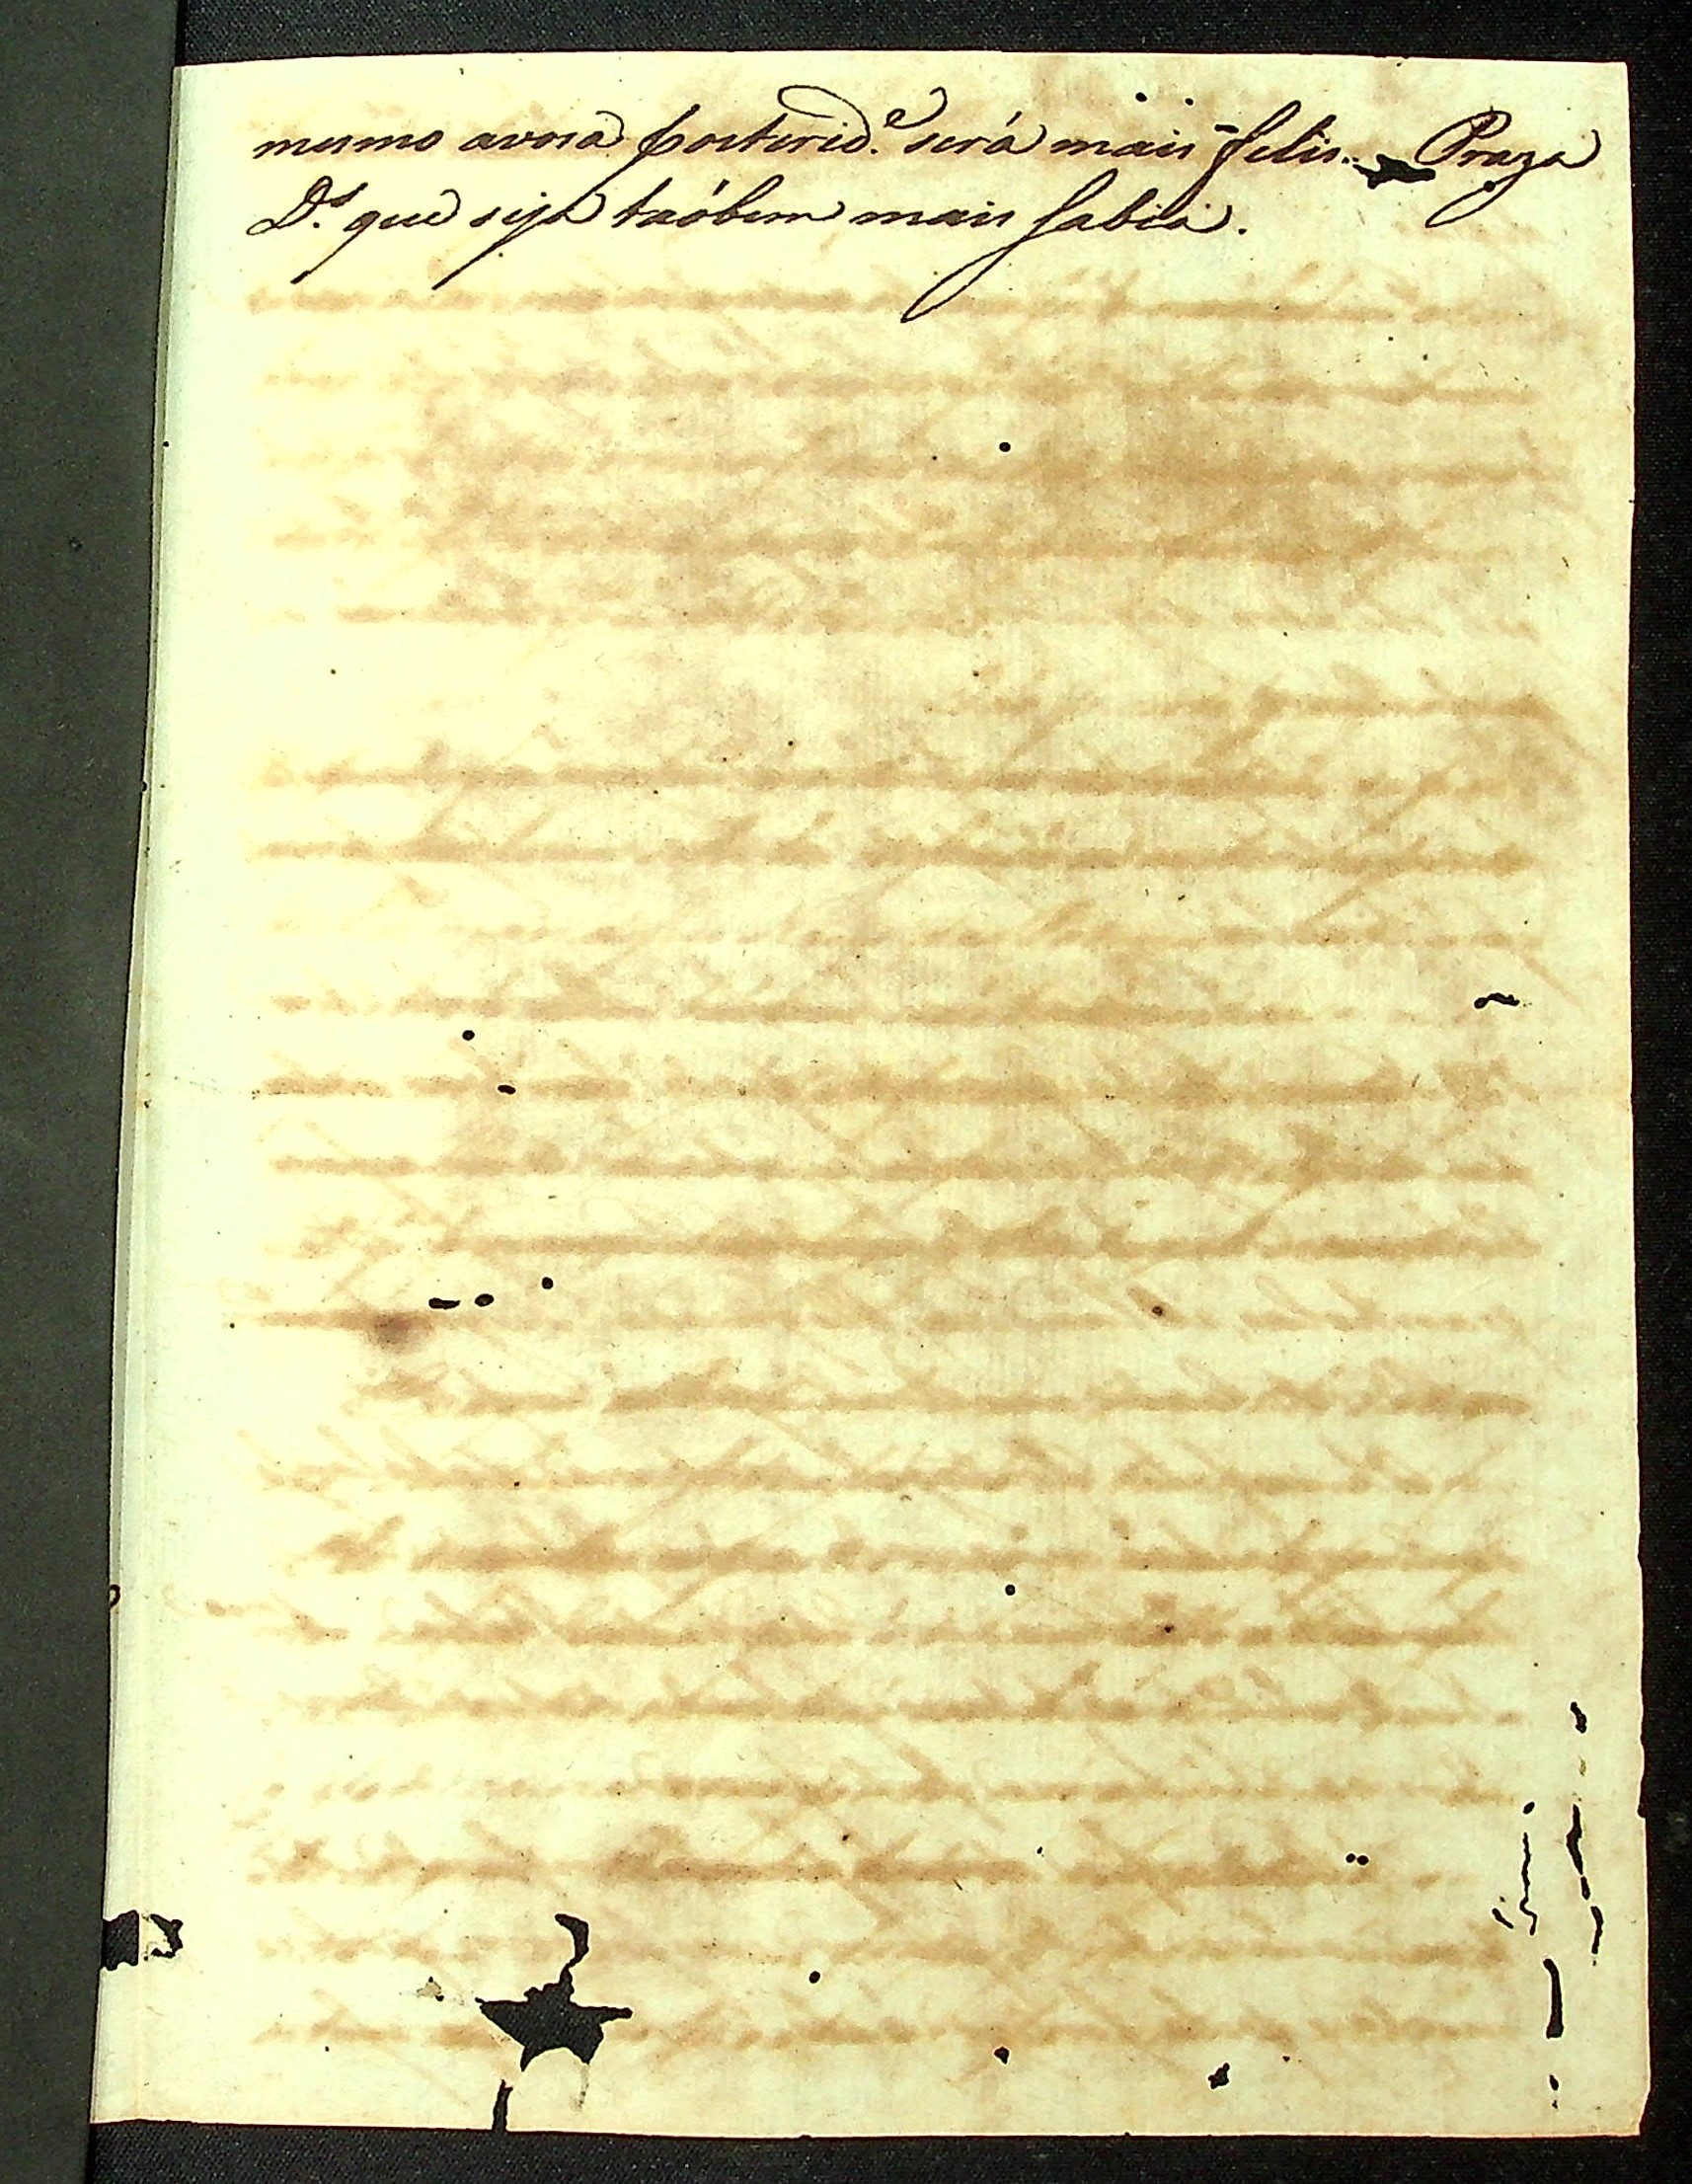 mesmo avosa posterid.e será mais felis. Praza
D.s que seja taóbem mais sabia.